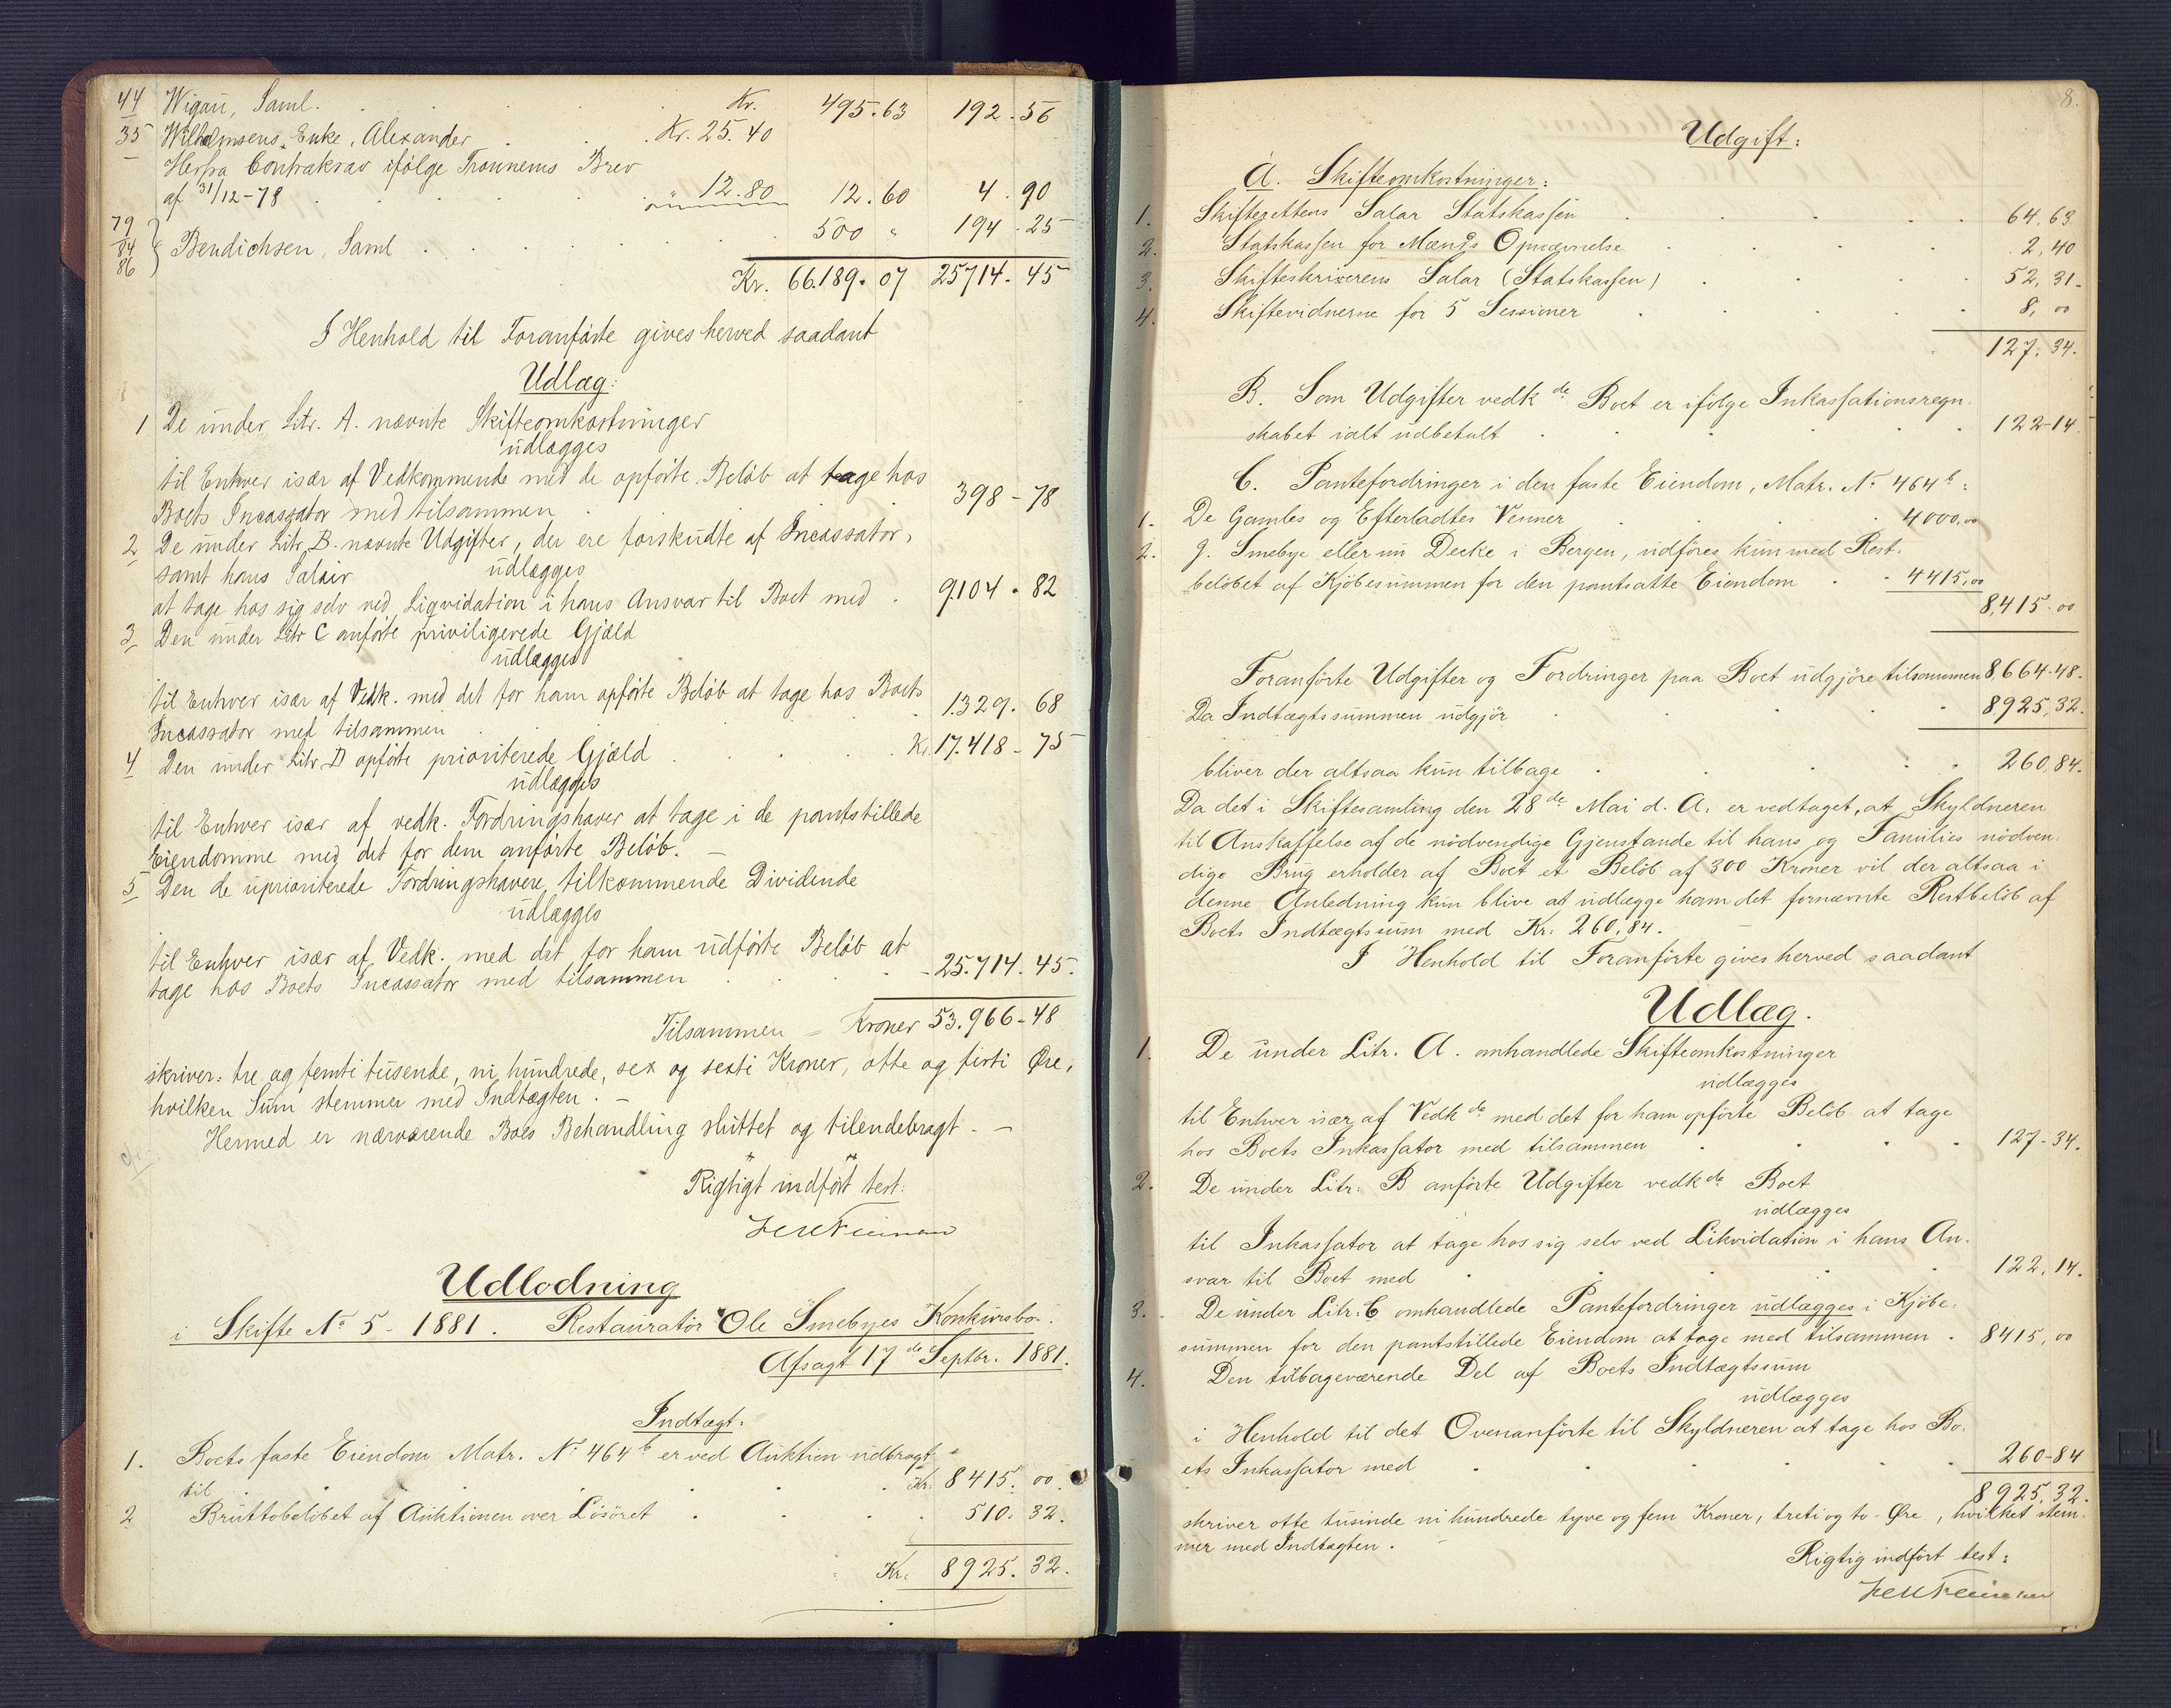 44 Wigau, Saml. Kr. 495.63 192.56
35 Wilhelmsens Enke, Alexander Kr. 25.40
Herfra Contrakrav ifølge Brev
af 31/12-78 " 12.80 12.60 4.90
79 84 86 } Bendichsen, Saml 500 " 194.25
Kr. 66.189.07 25714.45
I Henhold til Foranførte gives herved saadant
Udlæg:
1 De under Litr. A. nævnte Skifteomkostninger
udlægges
til Enhver især af Vedkommende med de opførte Beløb at tage hos
Boets Incassator med tilsammen 398-78
2 De under Litr. B. nævnte Udgifter, der ere forskudte af Incassator,
samt hans Salair udlægges
at tage hos sig selv ved Liqvidation i hans Ansvar til Boet med 9104.82
3 Den under Litr C anførte priviligerede Gjæld
udlægges
til Enhver især af Vedk. med det for ham opførte Beløb at tage hos Boets
Incassator med tilsammen 1329.68
4 Den under Litr D opførte prioriterede Gjæld Kr. 17.418-75
udlægges
til Enhver især af vedk. Fordringshaver at tage i de pantstillede
Eiendomme med det for dem anførte Beløb. -
5 Den de uprioriterede Fordringshavere tilkommende Dividende
udlægges
til Enhver især af Vedk. med det for ham udførte Beløb at
tage hos Boets Incassator med tilsammen 25.714.45.
Tilsammen - Kroner 53.966-48
skriver: tre og femti tusende, ni hundrede, sex og sexti Kroner, otte og firti Øre,
hvilken Sum stemmer med Indtægten. -
Hermed er nærværende Boes Behandling sluttet og tilendebragt. -
Rigtigt indført test:
Udlodning
i Skifte No 5 - 1881. Restauratør Ole Smebyes Konkursbo.
Afsagt 17de Septbr. 1881.
Indtægt:
1. Boets faste Eiendom Matr. No 464b er ved Auktion udbragt
til Kr. 8415.00.
2 Bruttobeløbet af Auktionen over Løsøret 510.32.
Kr. 8925.32.
8.
Udgift:
A. Skifteomkostninger:
1. Skifterettens Salar Statskassen 64,63
2. Statskassen for Mænds Opnævnelse 2,40
3. Skifteskriverens Salar (Statskassen) 52,31.
4. Skiftevidnerne for 5 Sessioner 8,00
127,34.
B. Som Udgifter vedkde Boet er ifølge Inkassationsregn
skabet ialt udbetalt 122-14
C. Pantefordringer i den faste Eiendom, Matr. No 464b:
1. De Gamles og Efterladtes Venner 4000,00
2. J. Smebye eller nu Decke i Bergen, udføres kun med Rest.
beløbet af Kjøbesummen for den pantsatte Eiendom 4415,00
8,415.00
Foranførte Udgifter og Fordringer paa Boet udgjøre tilsammen 8,664-48.
Da Indtægtssummen udgjør 8925,32.
bliver der altsaa kun tilbage 260,84.
Da det i Skiftesamling den 28de Mai d. A. er vedtaget, at Skyldneren
til Anskaffelse af de nødvendige Gjenstande til hans og Families nødven
dige Brug erholder af Boet et Beløb af 300 Kroner vil der altsaa i
denne Anledning kun blive at udlægge ham det fornævnte Restbeløb af
Boets Indtægtssum med Kr. 260,84.
I Henhold til Foranførte gives herved saadant
Udlæg.
1. De under Litr. A. omhandlede Skifteomkostninger
udlægges
til Enhver især af Vedkde med det for ham opførte Beløb at tage
hos Boets Inkassator med tilsammen 127-34.
2. De under Litr. B anførte Udgifter vedkde Boet
udlægges
til Inkassator at tage hos sig selv ved Likvidation i hans An.
svar til Boet med 122,14.
3. De under Litr. C omhandlede Pantefordringer udlægges i Kjøbe.
summen for den pantstillede Eiendom at tage med tilsammen 8415,00
4. Den tilbageværende Del af Boets Indtægtssum
udlægges
i Henhold til det Ovenanførte til Skyldneren at tage hos Bo.
ets Inkassator med 260-84
8925,32.
skriver otte tusinde ni hundrede tyve og fem Kroner, treti og to Øre, hvilket stem-
mer med Indtægten.
Rigtig indført test: